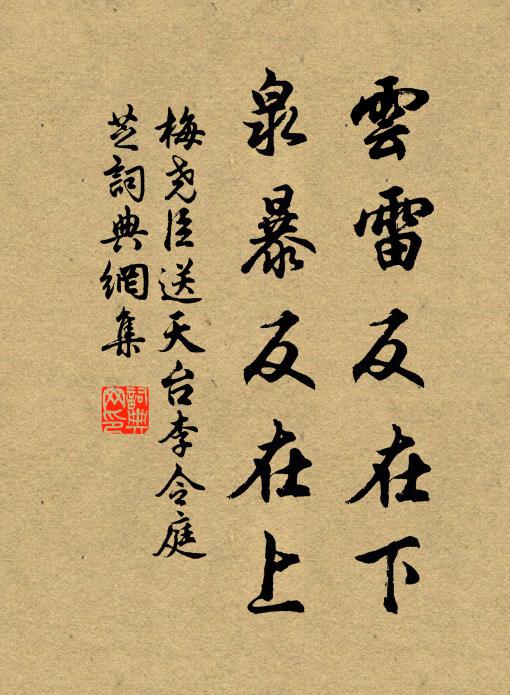 雲雷反在下
泉暴反在上
梅堯臣送天台李令庭
芝詞典網集
詞典
網印